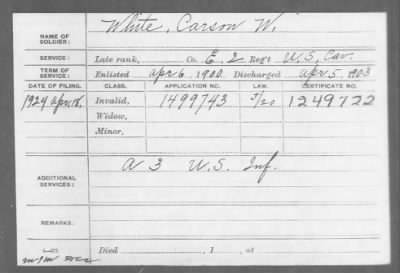 NAME OF SOLDIER: White, Carson W.
SERVICE: Late rank, Co. E. 2 Reg't U.S. Cav.
TERM OF SERVICE: Enlisted Apr 6. 1900. Discharged Apr 5. 1903
DATE OF FILING. CLASS. APPLICATION NO. LAW. CERTIFICATE NO.
1924 Apr. 18. Invalid, 1499743 1249722
Widow,
Minor,
ADDITIONAL SERVICES: A 3 U.S. Inf.
REMARKS:
Died , 1 , at